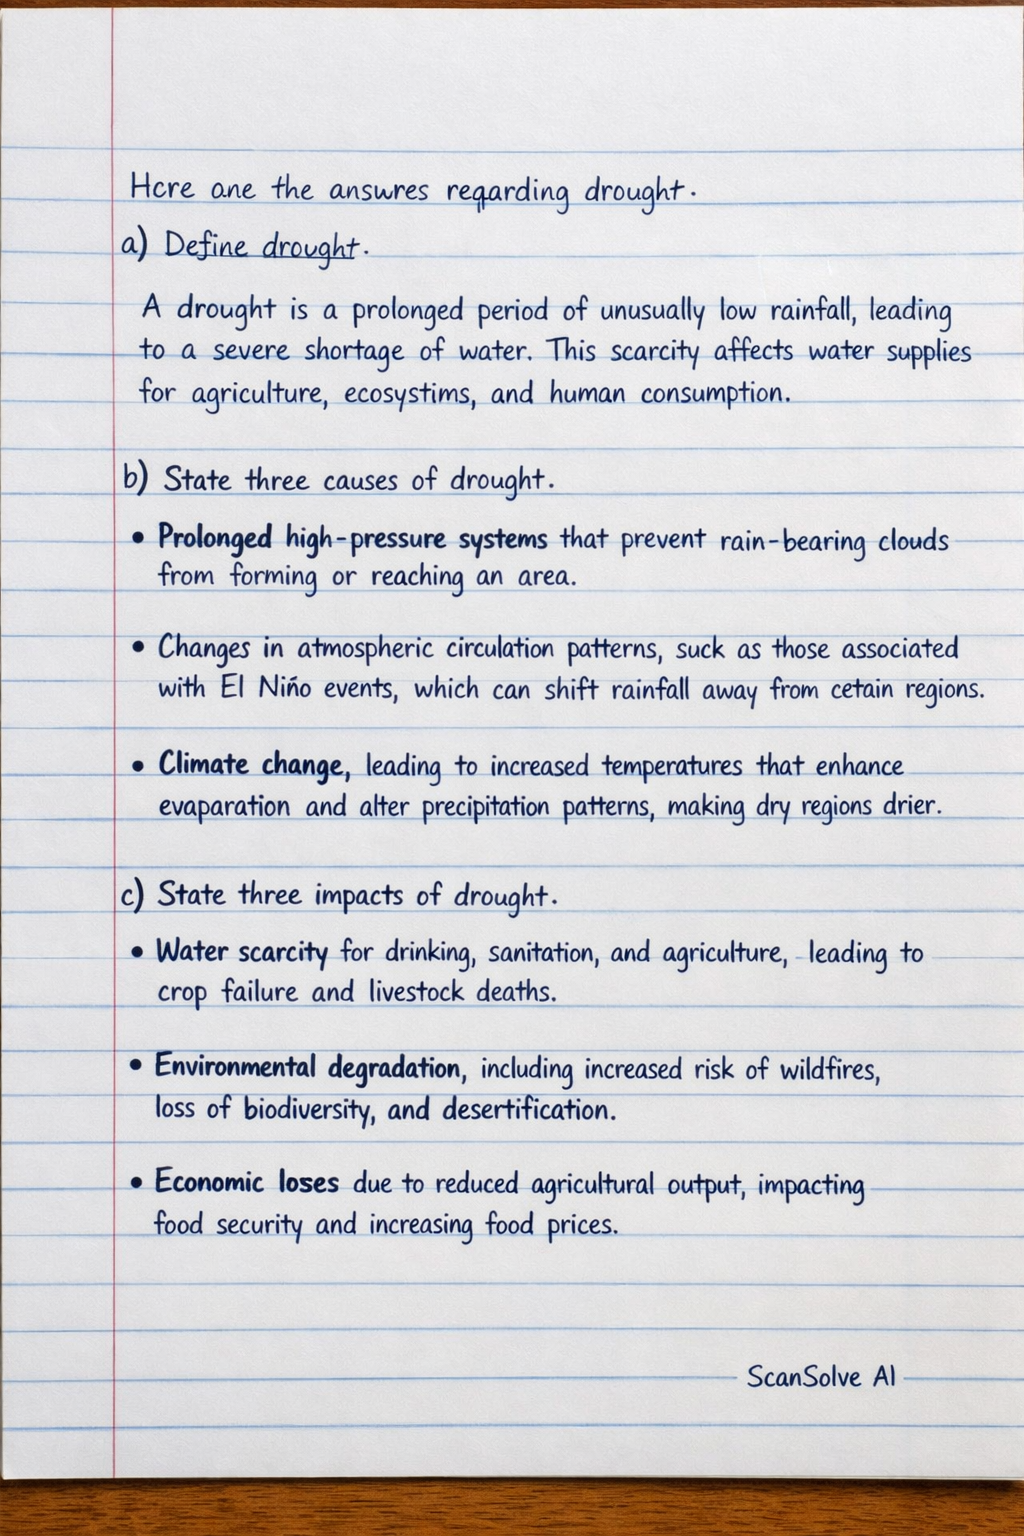 Hcre ane the answres regarding drought.
a) Define drought.
A drought is a prolonged period of unusually low rainfall, leading
to a severe shortage of water. This scarcity affects water supplies
for agriculture, ecosystims, and human consumption.
b) State three causes of drought.
• Prolonged high-pressure systems that prevent rain-bearing clouds
from forming or reaching an area.
• Changes in atmospheric circulation patterns, suck as those associated
with El Niño events, which can shift rainfall away from cetain regions.
• Climate change, leading to increased temperatures that enhance
evaparation and alter precipitation patterns, making dry regions drier.
c) State three impacts of drought.
• Water scarcity for drinking, sanitation, and agriculture, leading to
crop failure and livestock deaths.
• Environmental degradation, including increased risk of wildfires,
loss of biodiversity, and desertification.
• Economic loses due to reduced agricultural output, impacting
food security and increasing food prices.
ScanSolve AI